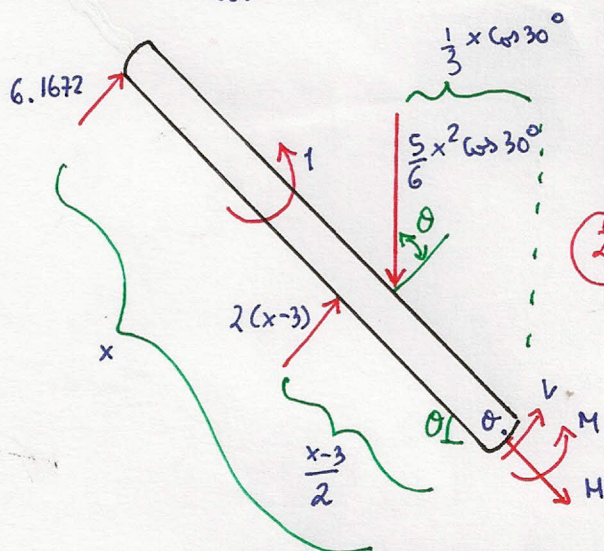 1/3 x cos30°
6.1672
5/6 x² cos30°
1
θ
2(x-3)
x
x-3/2
θ
θ.
V
M